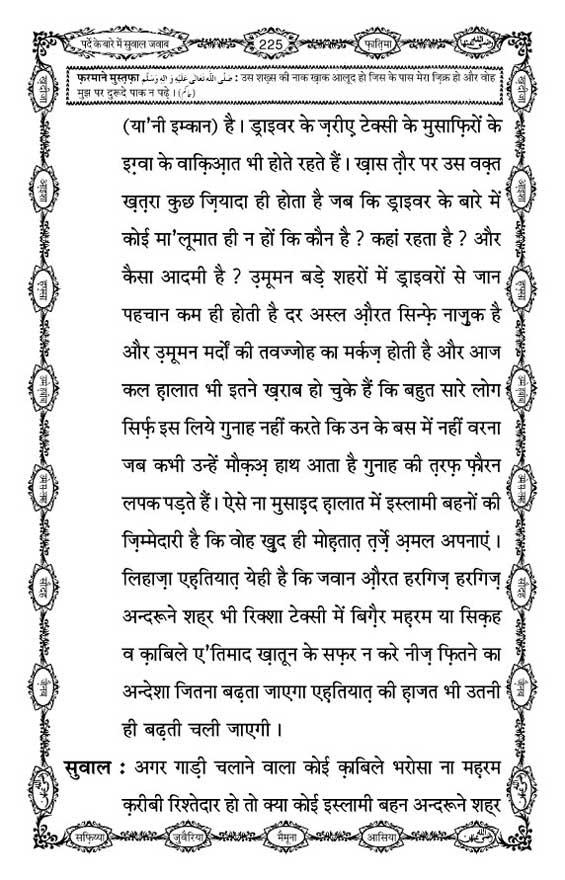 पर्दे के बारे में सुवाल जवाब
225
फ़ातिमा
फ़रमाने मुस्तफ़ा صَلَّى اللهُ تَعَالٰى عَلَيْهِ وَاٰلِهٖ وَسَلَّم : उस शख़्स की नाक ख़ाक आलूद हो जिस के पास मेरा ज़िक्र हो और वोह
मुझ पर दुरूदे पाक न पढ़े । (حاكم)
(या'नी इम्कान) है । ड्राइवर के ज़रीए टेक्सी के मुसाफ़िरों के
इग़्वा के वाक़िआ़त भी होते रहते हैं । ख़ास त़ौर पर उस वक़्त
ख़त़रा कुछ ज़ियादा ही होता है जब कि ड्राइवर के बारे में
कोई मा'लूमात ही न हों कि कौन है ? कहां रहता है ? और
कैसा आदमी है ? उ़मूमन बड़े शहरों में ड्राइवरों से जान
पहचान कम ही होती है दर अस्ल औ़रत सिन्फ़े नाज़ुक है
और उ़मूमन मर्दों की तवज्जोह का मर्कज़ होती है और आज
कल ह़ालात भी इतने ख़राब हो चुके हैं कि बहुत सारे लोग
सिर्फ़ इस लिये गुनाह नहीं करते कि उन के बस में नहीं वरना
जब कभी उन्हें मौक़अ़ हाथ आता है गुनाह की त़रफ़ फ़ौरन
लपक पड़ते हैं । ऐसे ना मुसाइद ह़ालात में इस्लामी बहनों की
ज़िम्मेदारी है कि वोह ख़ुद ही मोह़तात़ त़र्ज़े अ़मल अपनाएं ।
लिहाज़ा एह़तियात़ येही है कि जवान औ़रत हरगिज़ हरगिज़
अन्दरूने शहर भी रिक्शा टेक्सी में बिग़ैर मह़रम या सिक़ह
व क़ाबिले ए'तिमाद ख़ातून के सफ़र न करे नीज़ फ़ितने का
अन्देशा जितना बढ़ता जाएगा एह़तियात़ की ह़ाजत भी उतनी
ही बढ़ती चली जाएगी ।
सुवाल : अगर गाड़ी चलाने वाला कोई क़ाबिले भरोसा ना मह़रम
क़रीबी रिश्तेदार हो तो क्या कोई इस्लामी बहन अन्दरूने शहर
सफ़िय्या
जुवैरिया
मैमूना
आसिया